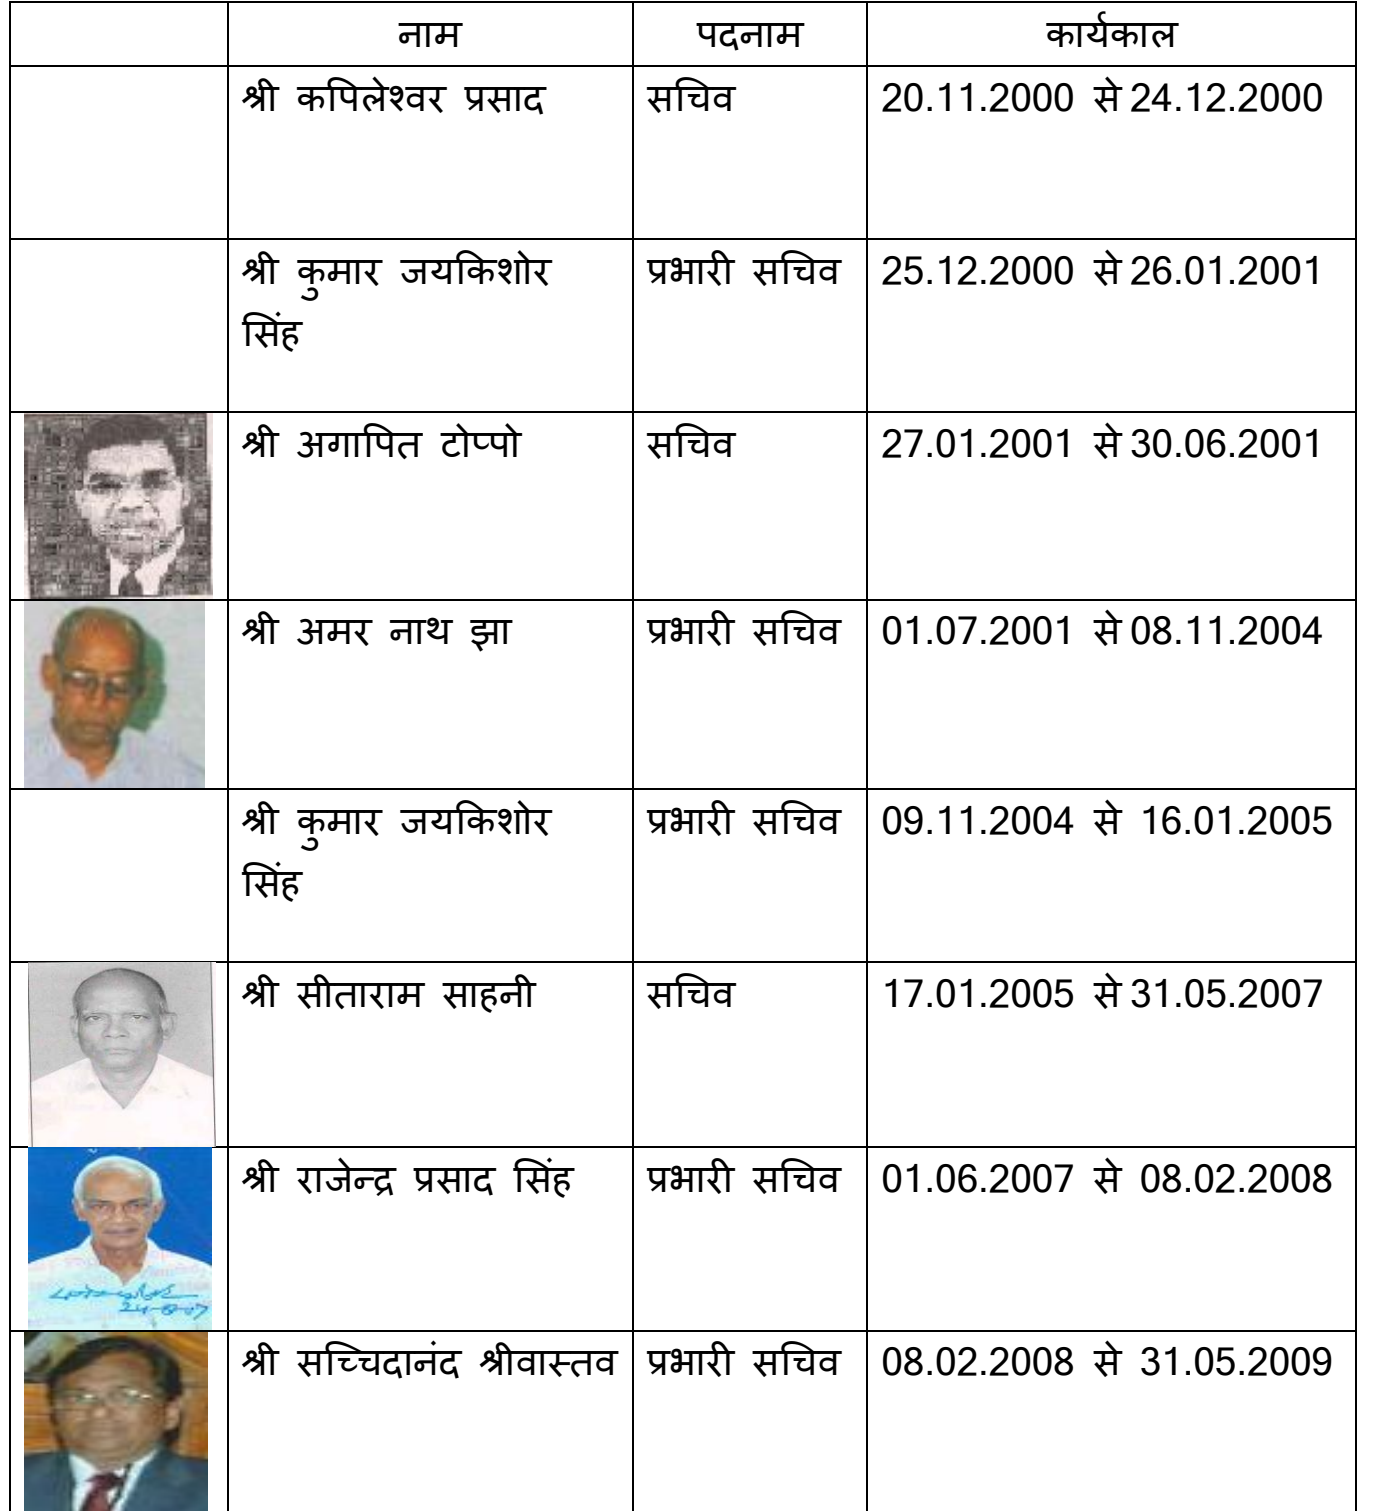 नाम पदनाम कार्यकाल
श्री कपिलेश्वर प्रसाद सचिव 20.11.2000 से 24.12.2000
श्री कुमार जयकिशोर प्रभारी सचिव 25.12.2000 से 26.01.2001
सिंह
श्री अगापित टोप्पो सचिव 27.01.2001 से 30.06.2001
श्री अमर नाथ झा प्रभारी सचिव 01.07.2001 से 08.11.2004
श्री कुमार जयकिशोर प्रभारी सचिव 09.11.2004 से 16.01.2005
सिंह
श्री सीताराम साहनी सचिव 17.01.2005 से 31.05.2007
श्री राजेन्द्र प्रसाद सिंह प्रभारी सचिव 01.06.2007 से 08.02.2008
श्री सच्चिदानंद श्रीवास्तव प्रभारी सचिव 08.02.2008 से 31.05.2009